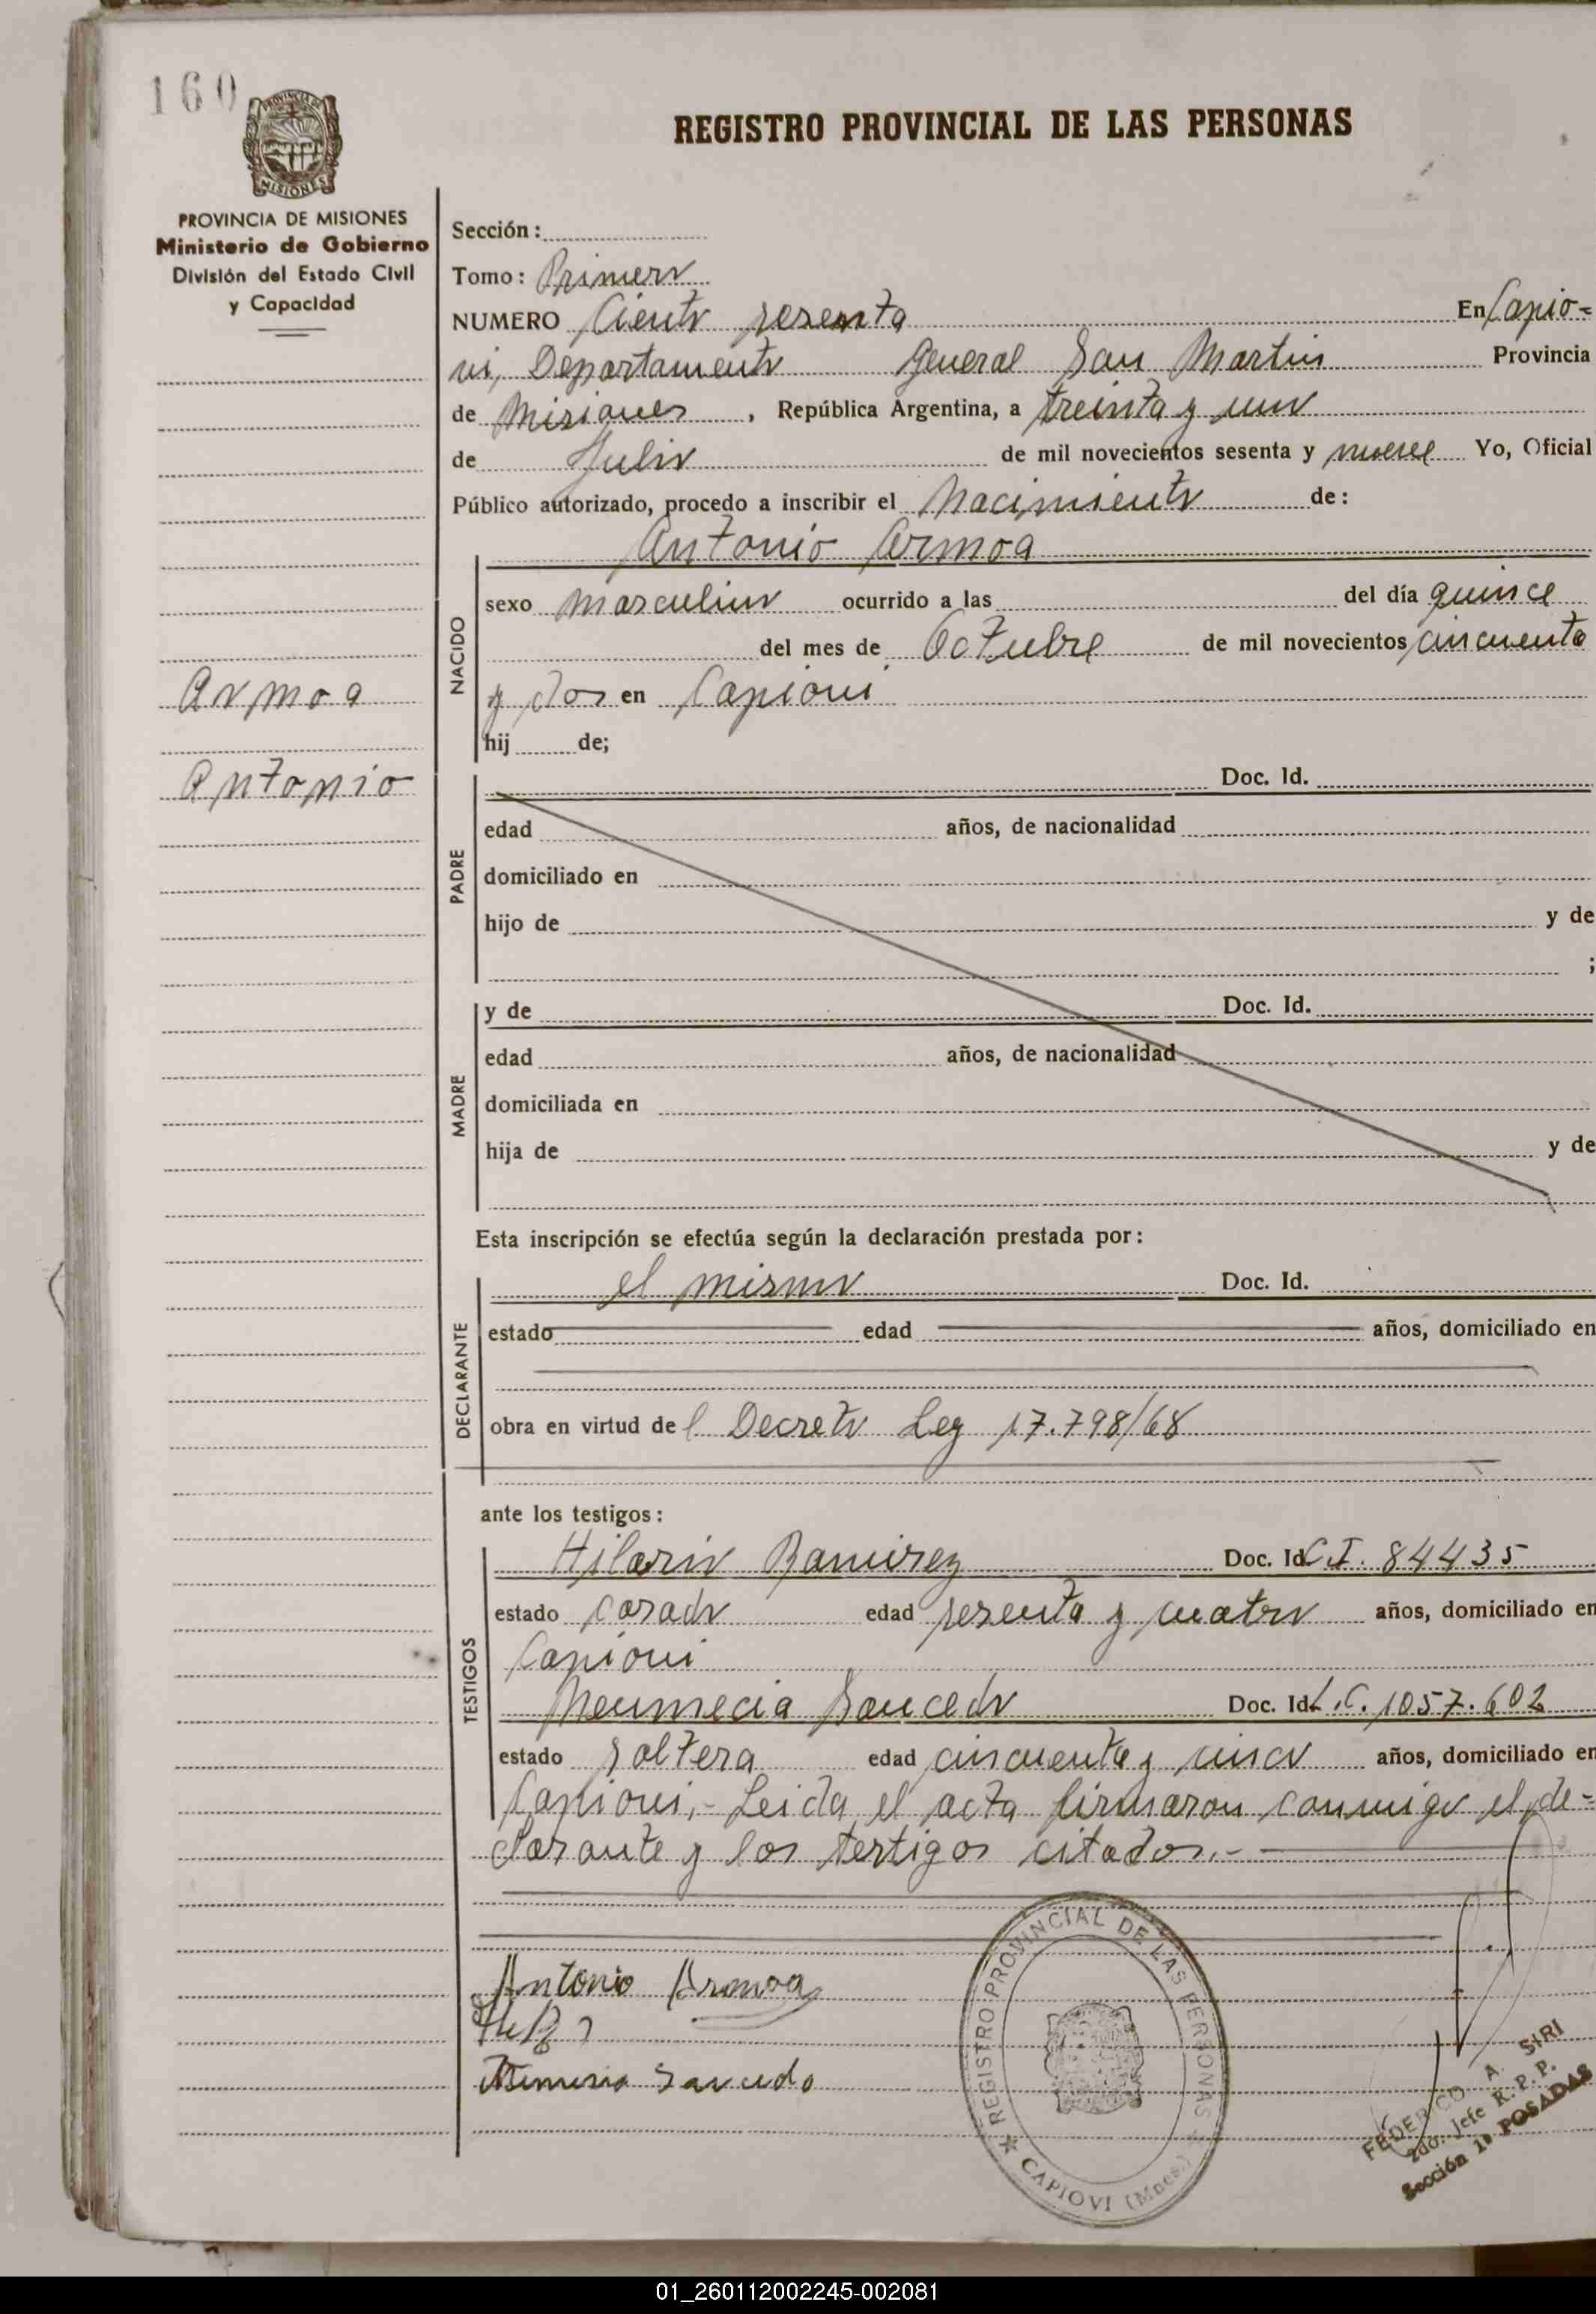 160
PROVINCIA DE MISIONES
REGISTRO PROVINCIAL DE LAS PERSONAS
PROVINCIA DE MISIONES
Ministerio de Gobierno
División del Estado Civil
y Capacidad
Sección:
Tomo: Primero
NUMERO Ciento sesenta En Capio=
vi, Departamento General San Martin Provincia
de Misiones, República Argentina, a treinta y uno
de Julio de mil novecientos sesenta y nueve Yo, Oficial
Público autorizado, procedo a inscribir el Nacimiento de:
Antonio Armoa
NACIDO
sexo Masculino ocurrido a las del día quince
del mes de Octubre de mil novecientos cincuenta
y dos en Capiovi
hij de;
Armoa
Antonio
PADRE
Doc. Id.
edad años, de nacionalidad
domiciliado en
hijo de y de
;
MADRE
y de Doc. Id.
edad años, de nacionalidad
domiciliada en
hija de y de
Esta inscripción se efectúa según la declaración prestada por:
DECLARANTE
el mismo Doc. Id.
estado edad años, domiciliado en
obra en virtud del Decreto Ley 17.798/68
ante los testigos:
TESTIGOS
Hilario Ramirez Doc. Id C.I. 84435
estado casado edad sesenta y cuatro años, domiciliado en
Capiovi
Saucedo Doc. Id L.C. 1057.602
estado soltera edad cincuenta y cinco años, domiciliado en
Capiovi.- Leida el acta firmaron conmigo el de=
clarante y los testigos citados.-
Antonio Armoa
Saucedo
REGISTRO PROVINCIAL DE LAS PERSONAS
CAPIOVI (Mnes.)
FEDERICO A. SIRI
2do. Jefe R.P.P.
Sección 1º POSADAS
01_260112002245-002081